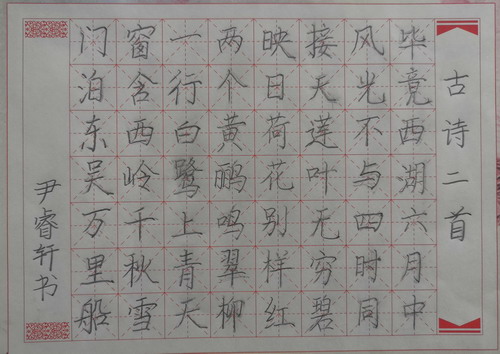 古诗二首
毕竟西湖六月中
风光不与四时同
接天莲叶无穷碧
映日荷花别样红
两个黄鹂鸣翠柳
一行白鹭上青天
窗含西岭千秋雪
门泊东吴万里船
尹睿轩书